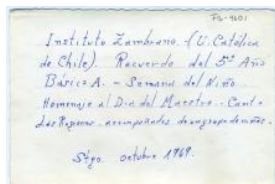 FB-9001
Instituto Zambrano. (U. Católica
de Chile). Recuerdo del 5º Año
Básico A. - Semana del Niño.
Homenaje al Dia del Maestro - Canta
acompañados de un grupo de niños.
Stgo. octubre 1969.